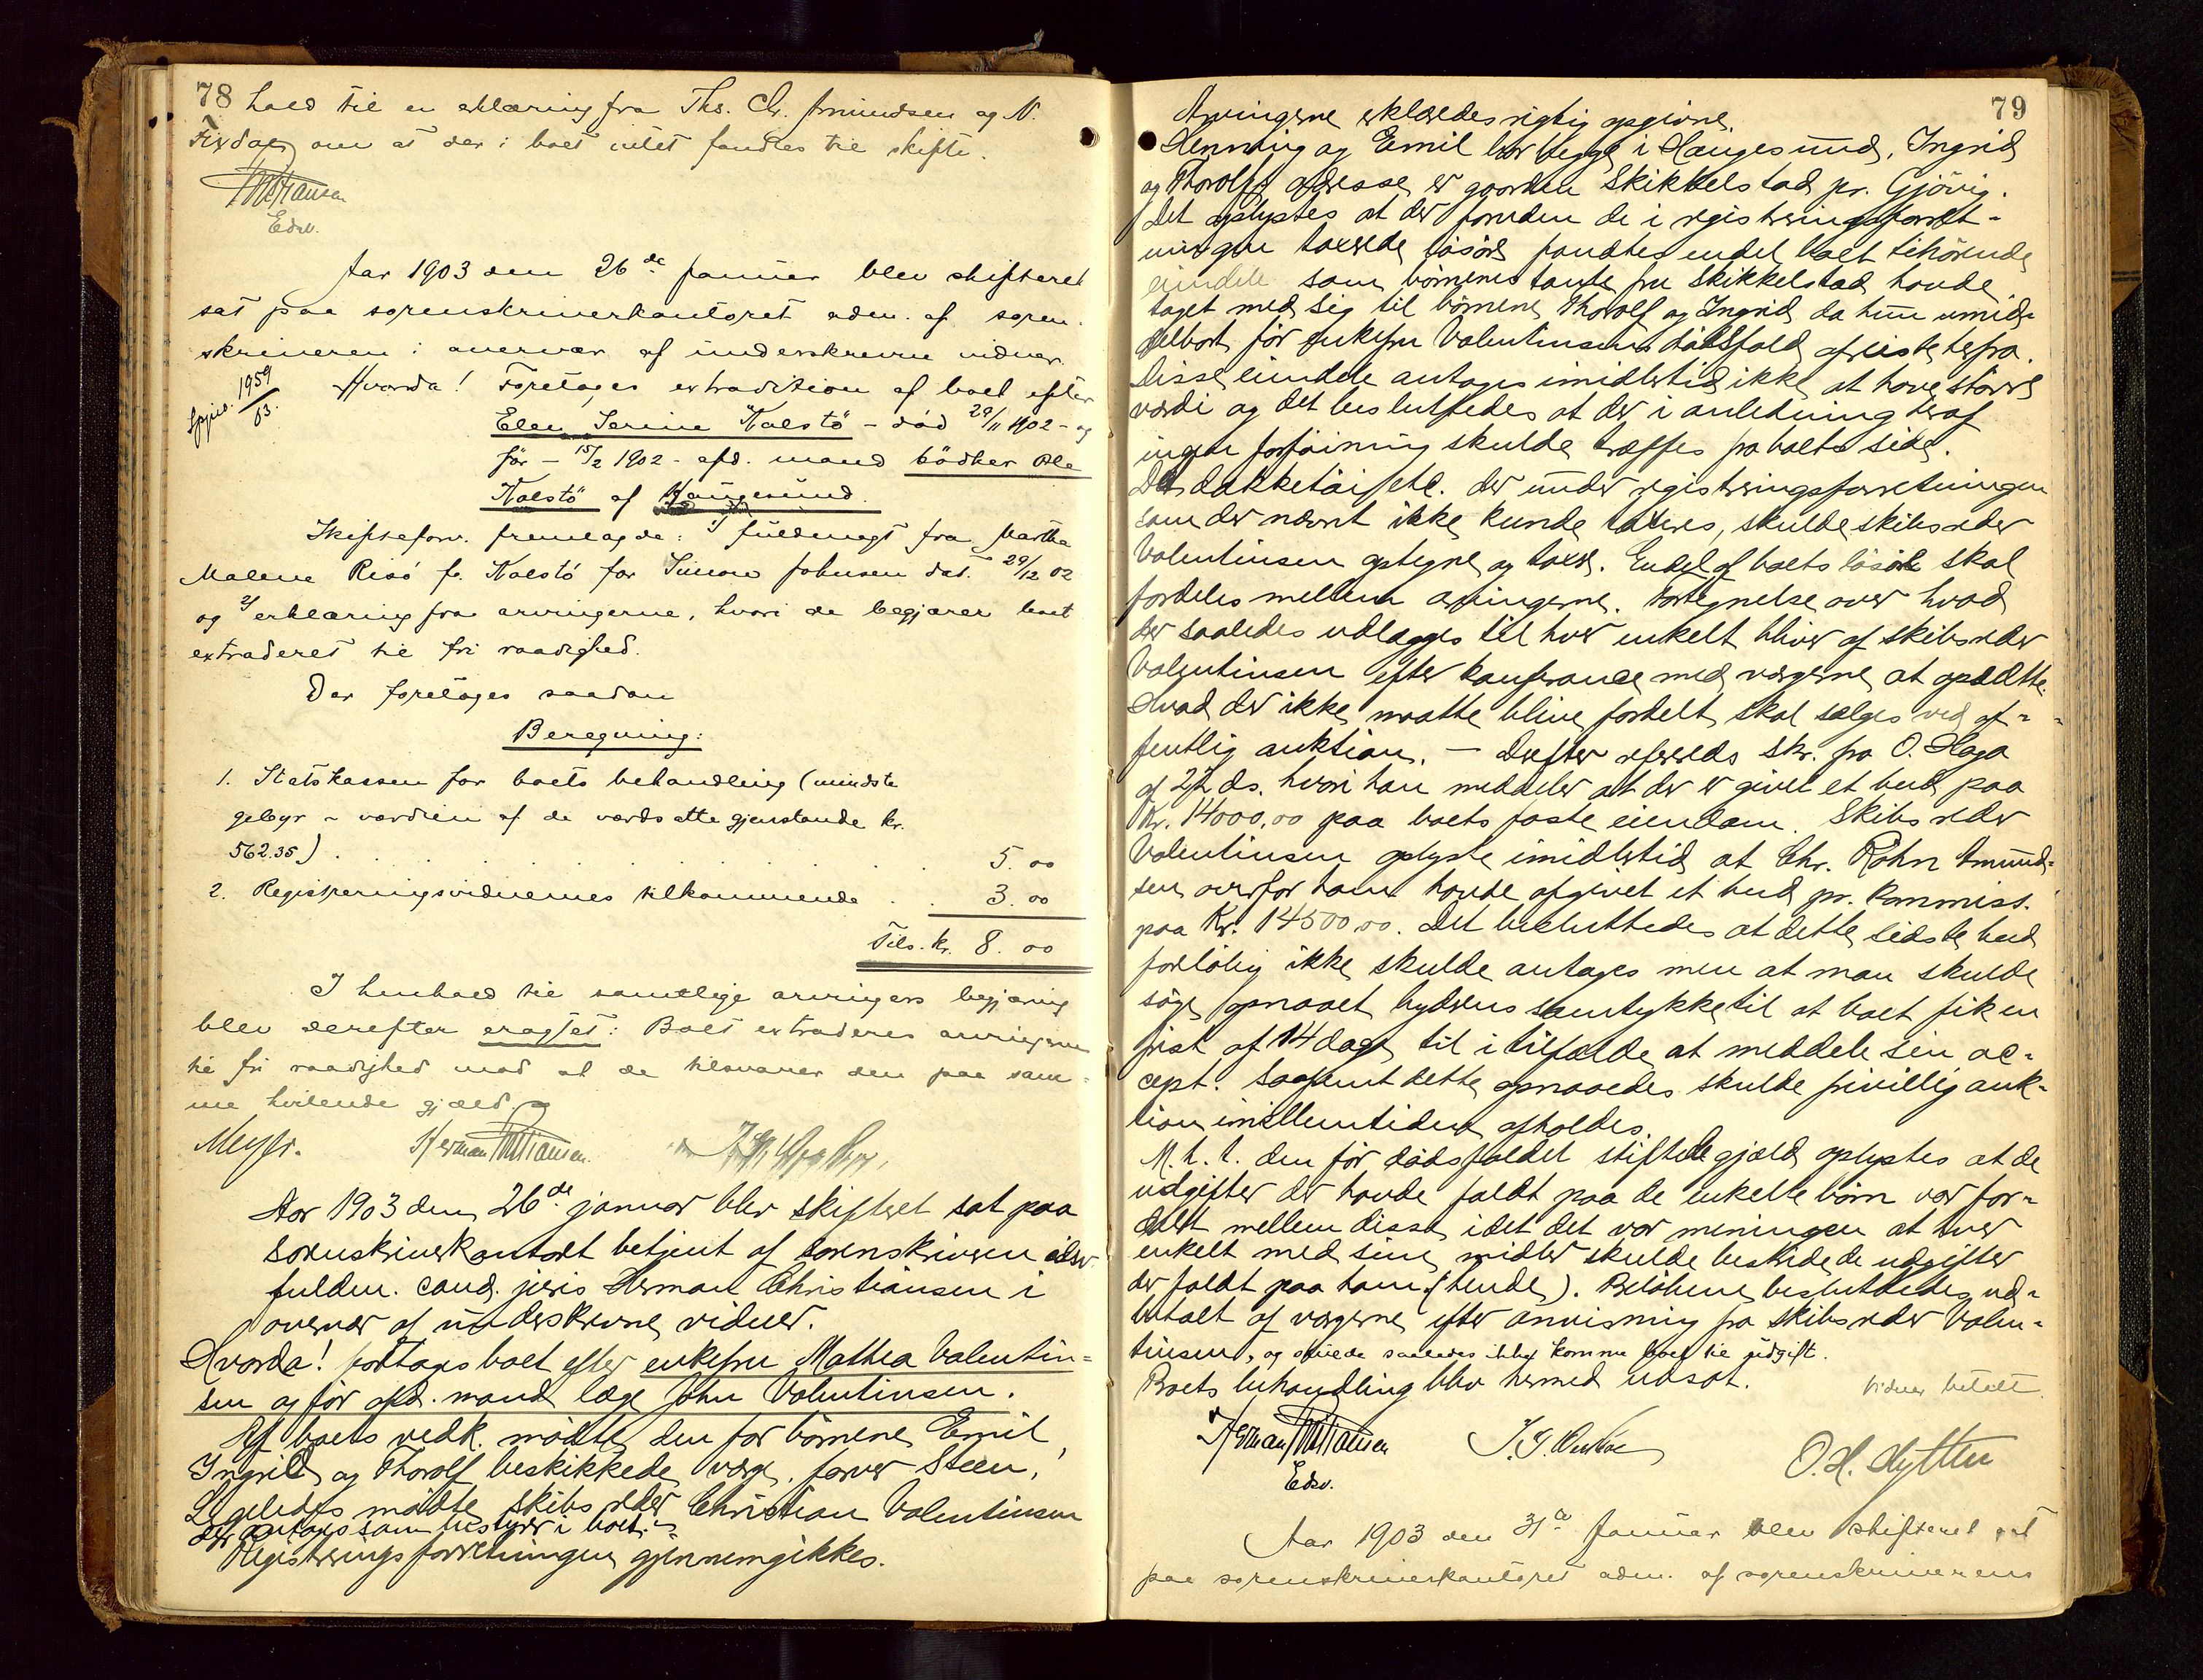 78 hold til en erklæring fra Ths. Chr. Amundsen og N.
Fixdage om at der i boet intet fandtes til skifte.
Edsv.
Aar 1903 den 26de Januar blev skifteret
sat paa sorenskriverkontoret adm. af soren-
skriveren i overvær af underskrevne vidner.
1959/03. Hvorda! Foretages extradition af boet efter
Elen Serine Kalstö - död 29/11 1902 - og
før - 15/2 1902 - afd. mand bödker Ole
Kalstö af Haugesund.
Skifteforv. fremlagde: 1/ fuldmagt fra Martha
Malene Risö f. Kalstö for Simon Johnsen dat. 29/12 02
og 2/ erklæring fra arvingerne, hvori de begjærer boet
extraderet til fri raadighed.
Der foretages saadan
Beregning:
1. Statskassen for boets behandling (mindste
gebyr - værdien af de værdsatte gjenstande kr.
562.35) . . . 5.00
2. Registreringsvidnernes tilkommende . . 3.00
Tils. kr. 8.00
I henhold til samtlige arvingers begjæring
blev derefter eragtet: Boet extraderes arvingerne
til fri raadighed mod at de tilsvarer den paa sam-
me hvilende gjæld.
Meyer. Herman Christiansen.
Aar 1903 den 26de januar blev skifteret sat paa
sorenskriverkontoret betjent af sorenskriveren edsv.
fuldm. cand. juris Herman Christiansen i
overvær af underskrevne vidner.
Hvorda! foretages boet efter enkefru Mathea Valentin-
sen og før afd. mand læge John Valentinsen.
Af boets vedk. mødte den for børnene Emil,
Ingrid og Thorolf beskikkede værge, farver Steen,
Ligeledes mødte skibsreder Christian Valentinsen
der antages som bestyrer i boet.
Registreringsforretningen gjennemgikkes.
79
Arvingerne erklæredes rigtig opgivne.
Henning og Emil bor begge i Haugesund, Ingrid
og Thorolfs adresse er gaarden Skikkelstad pr. Gjövig.
Det oplystes at der foruden de i registreringsforret-
ningen taxerede løsøre fandtes endel boet tilhörende
eiendele som børnenes tante fru Skikkelstad havde
taget med sig til børnene Thorolf og Ingrid da hun umid-
delbart før enkefru Valentinsens dødsfald afreiste herfra.
Disse eiendele antages imidlertid ikke at have større
værdi og det besluttedes at der i anledning heraf
ingen forføining skulde træffes fra boets side.
Det dækketøi etc. der under registreringsforretningen
som der nævnt ikke kunde taxeres, skulde skibsreder
Valentinsen optegne og taxere. Endel af boets løsøre skal
fordeles mellem arvingerne. Fortegnelse over hvad
der saaledes udlægges til hver enkelt bliver af skibsreder
Valentinsen efter konferance med værgerne at opsætte.
Hvad der ikke maatte blive fordelt skal sælges ved of-
fentlig auktion. - Derefter refereredes skr. fra O. Haga
af 22 ds. hvori han meddeler at der er givet et bud paa
Kr. 14000,00 paa boets faste eiendom. Skibsreder
Valentinsen oplyste imidlertid at Chr. Røhn Amund-
sen overfor ham havde afgivet et bud pr. kommiss.
paa Kr. 14500,00. Det besluttedes at dette sidste bud
forløbig ikke skulde antages men at man skulde
søge opnaaet byderens samtykke til at boet fik en
frist af 14 dage til i tilfælde at meddele sin ac-
cept. Saafremt dette opnaaedes skulde frivillig auk-
tion imellemtiden afholdes.
M. h. t. den før dødsfaldet stiftede gjæld oplystes at de
udgifter der havde faldt paa de enkelte børn var for-
delt mellem disse idet det var meningen at hver
enkelt med sine midler skulde bestride de udgifter
der faldt paa ham (hende). Beløbene besluttedes ud-
betalt af værgerne efter anvisning fra skibsreder Valen-
tinsen, og skulde saaledes ikke komme boet til udgift.
Boets behandling blev hermed udsat. Vidner betalt.
Herman Christiansen O. H. Hytten
Edsv.
Aar 1903 den 31te Januar blev skifteret sat
paa sorenskriverkontoret adm. af sorenskriverens